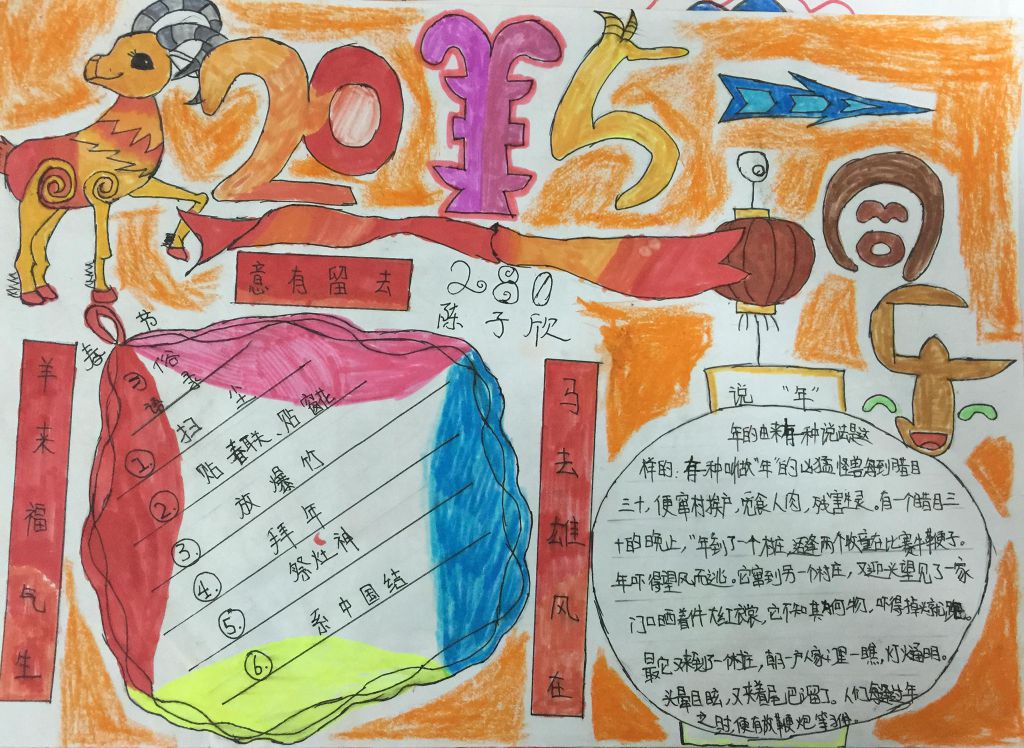 2015
意有留去
280
陈子欣
羊来福气生
春节
习俗
①扫尘
②贴春联、贴窗花
③放爆竹
④拜年
⑤祭灶神
⑥系中国结
马去雄风在
说"年"
年的由来有一种说法是这
样的:有一种叫做"年"的凶猛怪兽每到腊月
三十,便窜村挨户,觅食人肉,残害生灵。有一个腊月三
十的晚上,"年到了一个村庄,适逢两个牧童在比赛牛鞭子。
年吓得望风而逃。它窜到另一个村庄,又迎头望见了一家
门口晒着件大红衣裳,它不知其为何物,吓得掉头就跑。
最它又来到了一个村庄,朝一户人家门里一瞧,灯火通明。
头晕目眩,又夹着尾巴溜了。人们每逢过年
之时,便有放鞭炮等习俗。